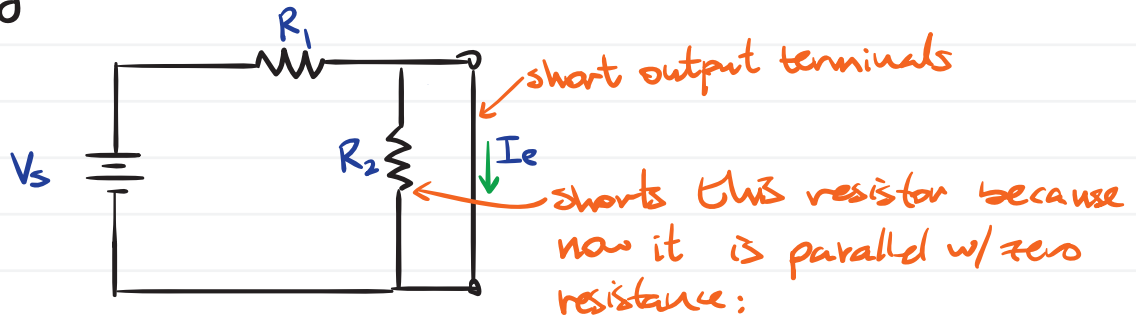 R1
short output terminals
Vs
R2
Ie
shorts this resistor because
now it is parallel w/ zero
resistance: